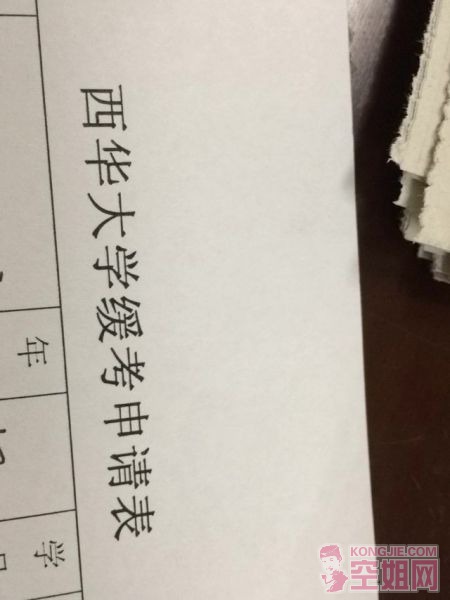 西华大学缓考申请表
年
学
KONGJIE.COM
空姐网